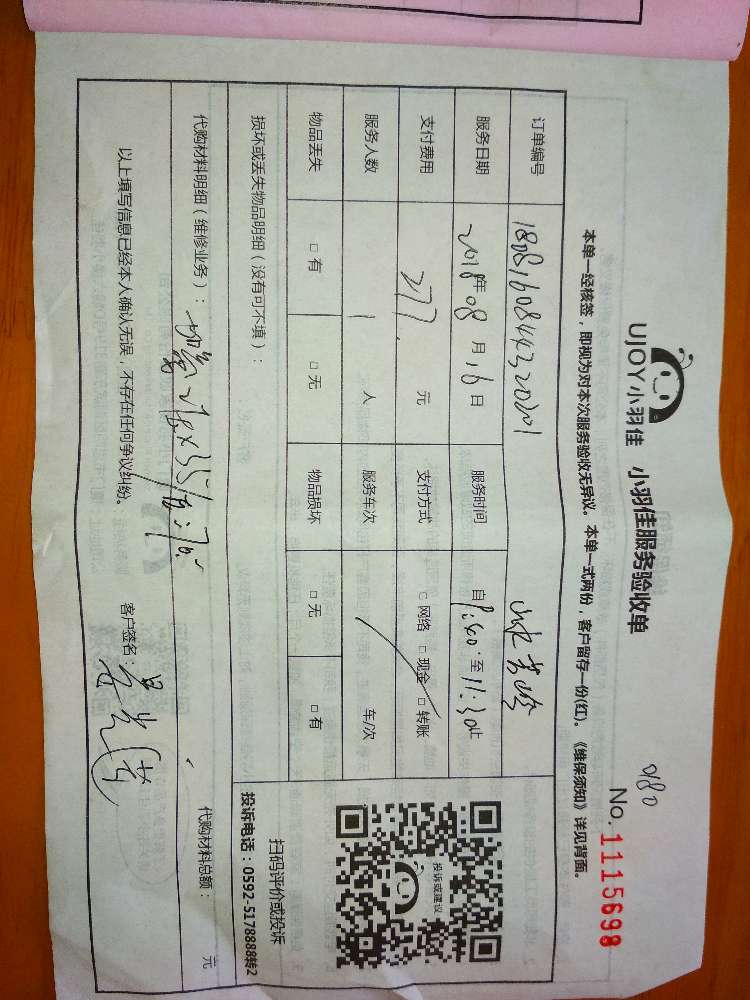 0180
UJOY小羽佳 小羽佳服务验收单
No.1115698
本单一经核签，即视为对本次服务验收无异议。本单一式两份，客户留存一份(红)。《维保须知》详见背面。
订单编号
服务日期 2018年08月16日 服务时间 自 至11:30止
支付费用 277. 元 支付方式 □网络 □现金 □转账
服务人数 1 人 服务车次 / 车/次
物品丢失 □有 □无 物品损坏 □无 □有
损坏或丢失物品明细（没有可不填）：
投诉或建议
扫码评价或投诉
投诉电话：0592-5178888转2
代购材料明细（维修业务）：
代购材料总额： 元
以上填写信息已经本人确认无误，不存在任何争议纠纷。 客户签名：